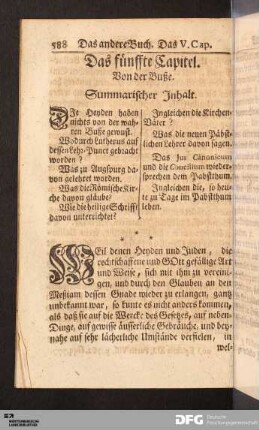 588 Das andere Buch. Das V. Cap.
Das fünffte Capitel.
Von der Buße.
Summarischer Inhalt.
DJe Heyden haben
nichts von der wah-
ren Buße gewust.
Wodurch Lutherus auf
dessen Lehr-Punct gebracht
worden?
Was zu Augspurg da-
von gelehret worden.
Was die Römische Kir-
che davon gläube?
Wie die heilige Schrifft
davon unterrichtet?
Ingleichen die Kirchen-
Väter?
Was die neuen Päbst-
lichen Lehrer davon sagen.
Das Jus Canonicum
und die Concilium wieder-
sprechen dem Pabstthum.
Ingleichen die, so heu-
te zu Tage im Pabstthum
leben.
WEil denen Heyden und Juden, die
rechtschaffene und GOtt gefällige Art
und Weise, sich mit ihm zu vereini-
gen, und durch den Glauben an den
Meßiam dessen Gnade wieder zu erlangen, gantz
unbekannt war, so kunte es nicht anders kommen,
als daß sie auf die Wercke des Gesetzes, auf neben-
Dinge, auf gewisse äusserliche Gebräuche, und bey-
nahe auf sehr lächerliche Umstände verfielen, in
wel-
WÜRTTEMBERGISCHE
LANDESBIBLIOTHEK
DFG Deutsche
Forschungsgemeinschaft